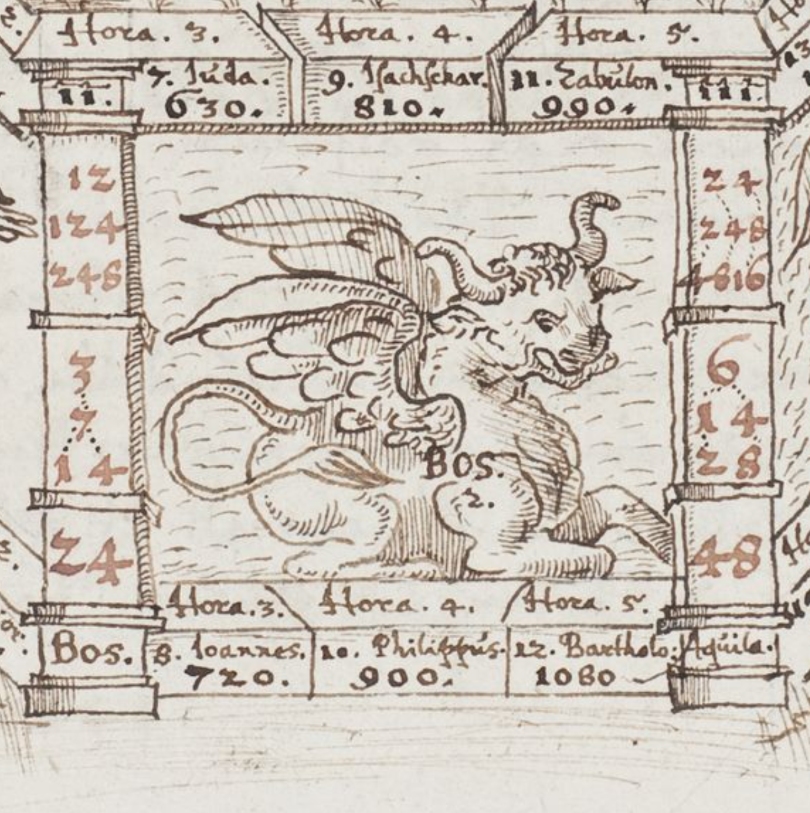 Hora. 3. Hora. 4. Hora. 5.
7. Iúda. 9. Isachschar. 11. Zabúlon.
630. 810. 990.
II. III.
12
124
248
3
7
14
24
Bos.
24
248
4816
6
14
28
48
Aqúila.
Bos.
2.
Hora. 3. Hora. 4. Hora. 5.
8. Ioannes. 10. Philippús. 12. Bartholo:
720. 900. 1080